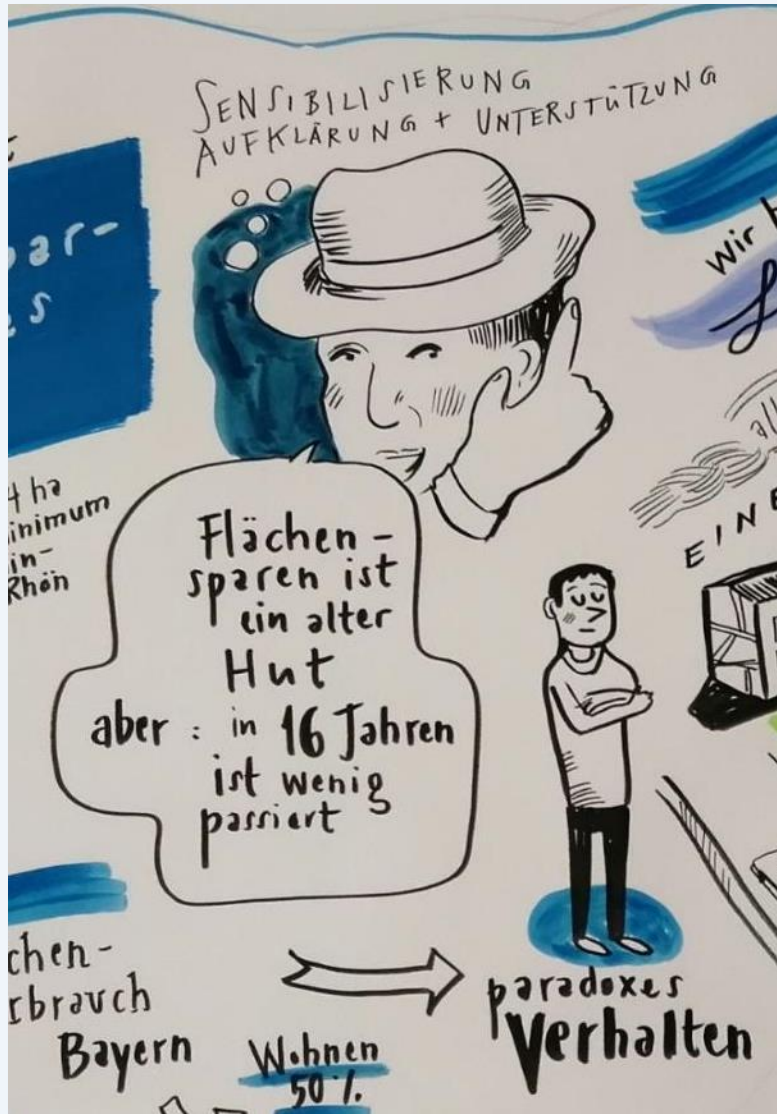 SENSIBILISIERUNG
AUFKLÄRUNG + UNTERSTÜTZUNG
ar-
es
wir
4 ha
inimum
in-
Rhön
EINE
Flächen-
sparen ist
ein alter
Hut
aber : in 16 Jahren
ist wenig
passiert
chen-
rbrauch
Bayern
Wohnen
50 %
paradoxes
Verhalten